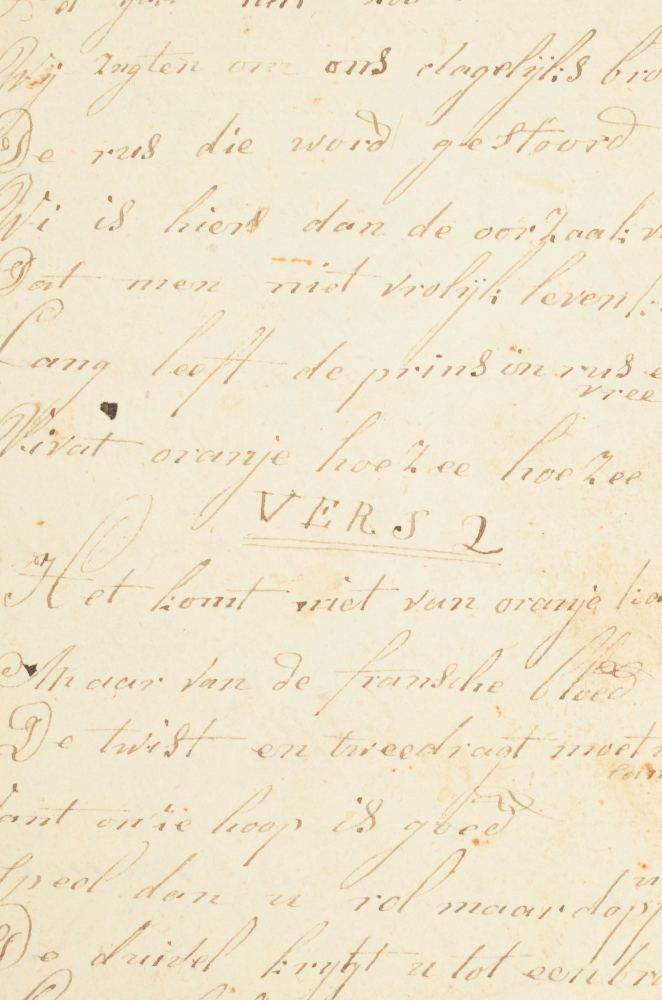 Wij zugten om ons dagelijks bro
De rus die word gestoord
Wi is hiers dan de oorzaak v
Dat men niet vrolijk leven k
Lang leeft de prins in rus e
vree
Vivat oranje hoezee hoezee
VERS 2
Het komt niet van oranje ka
Maar van de fransche bloed
De twist en tweedragt moet
lan
ant onze hoop is goed
speel dan u rol maar dapp
De duivel krygt u tot een br